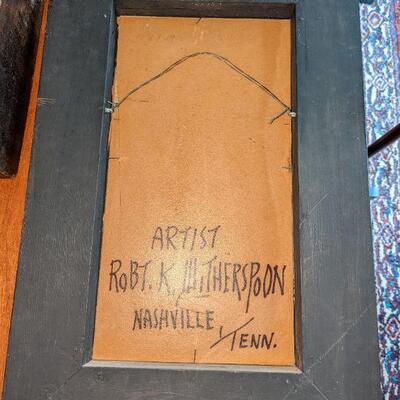 ARTIST
ROBT. K. WITHERSPOON
NASHVILLE,
TENN.